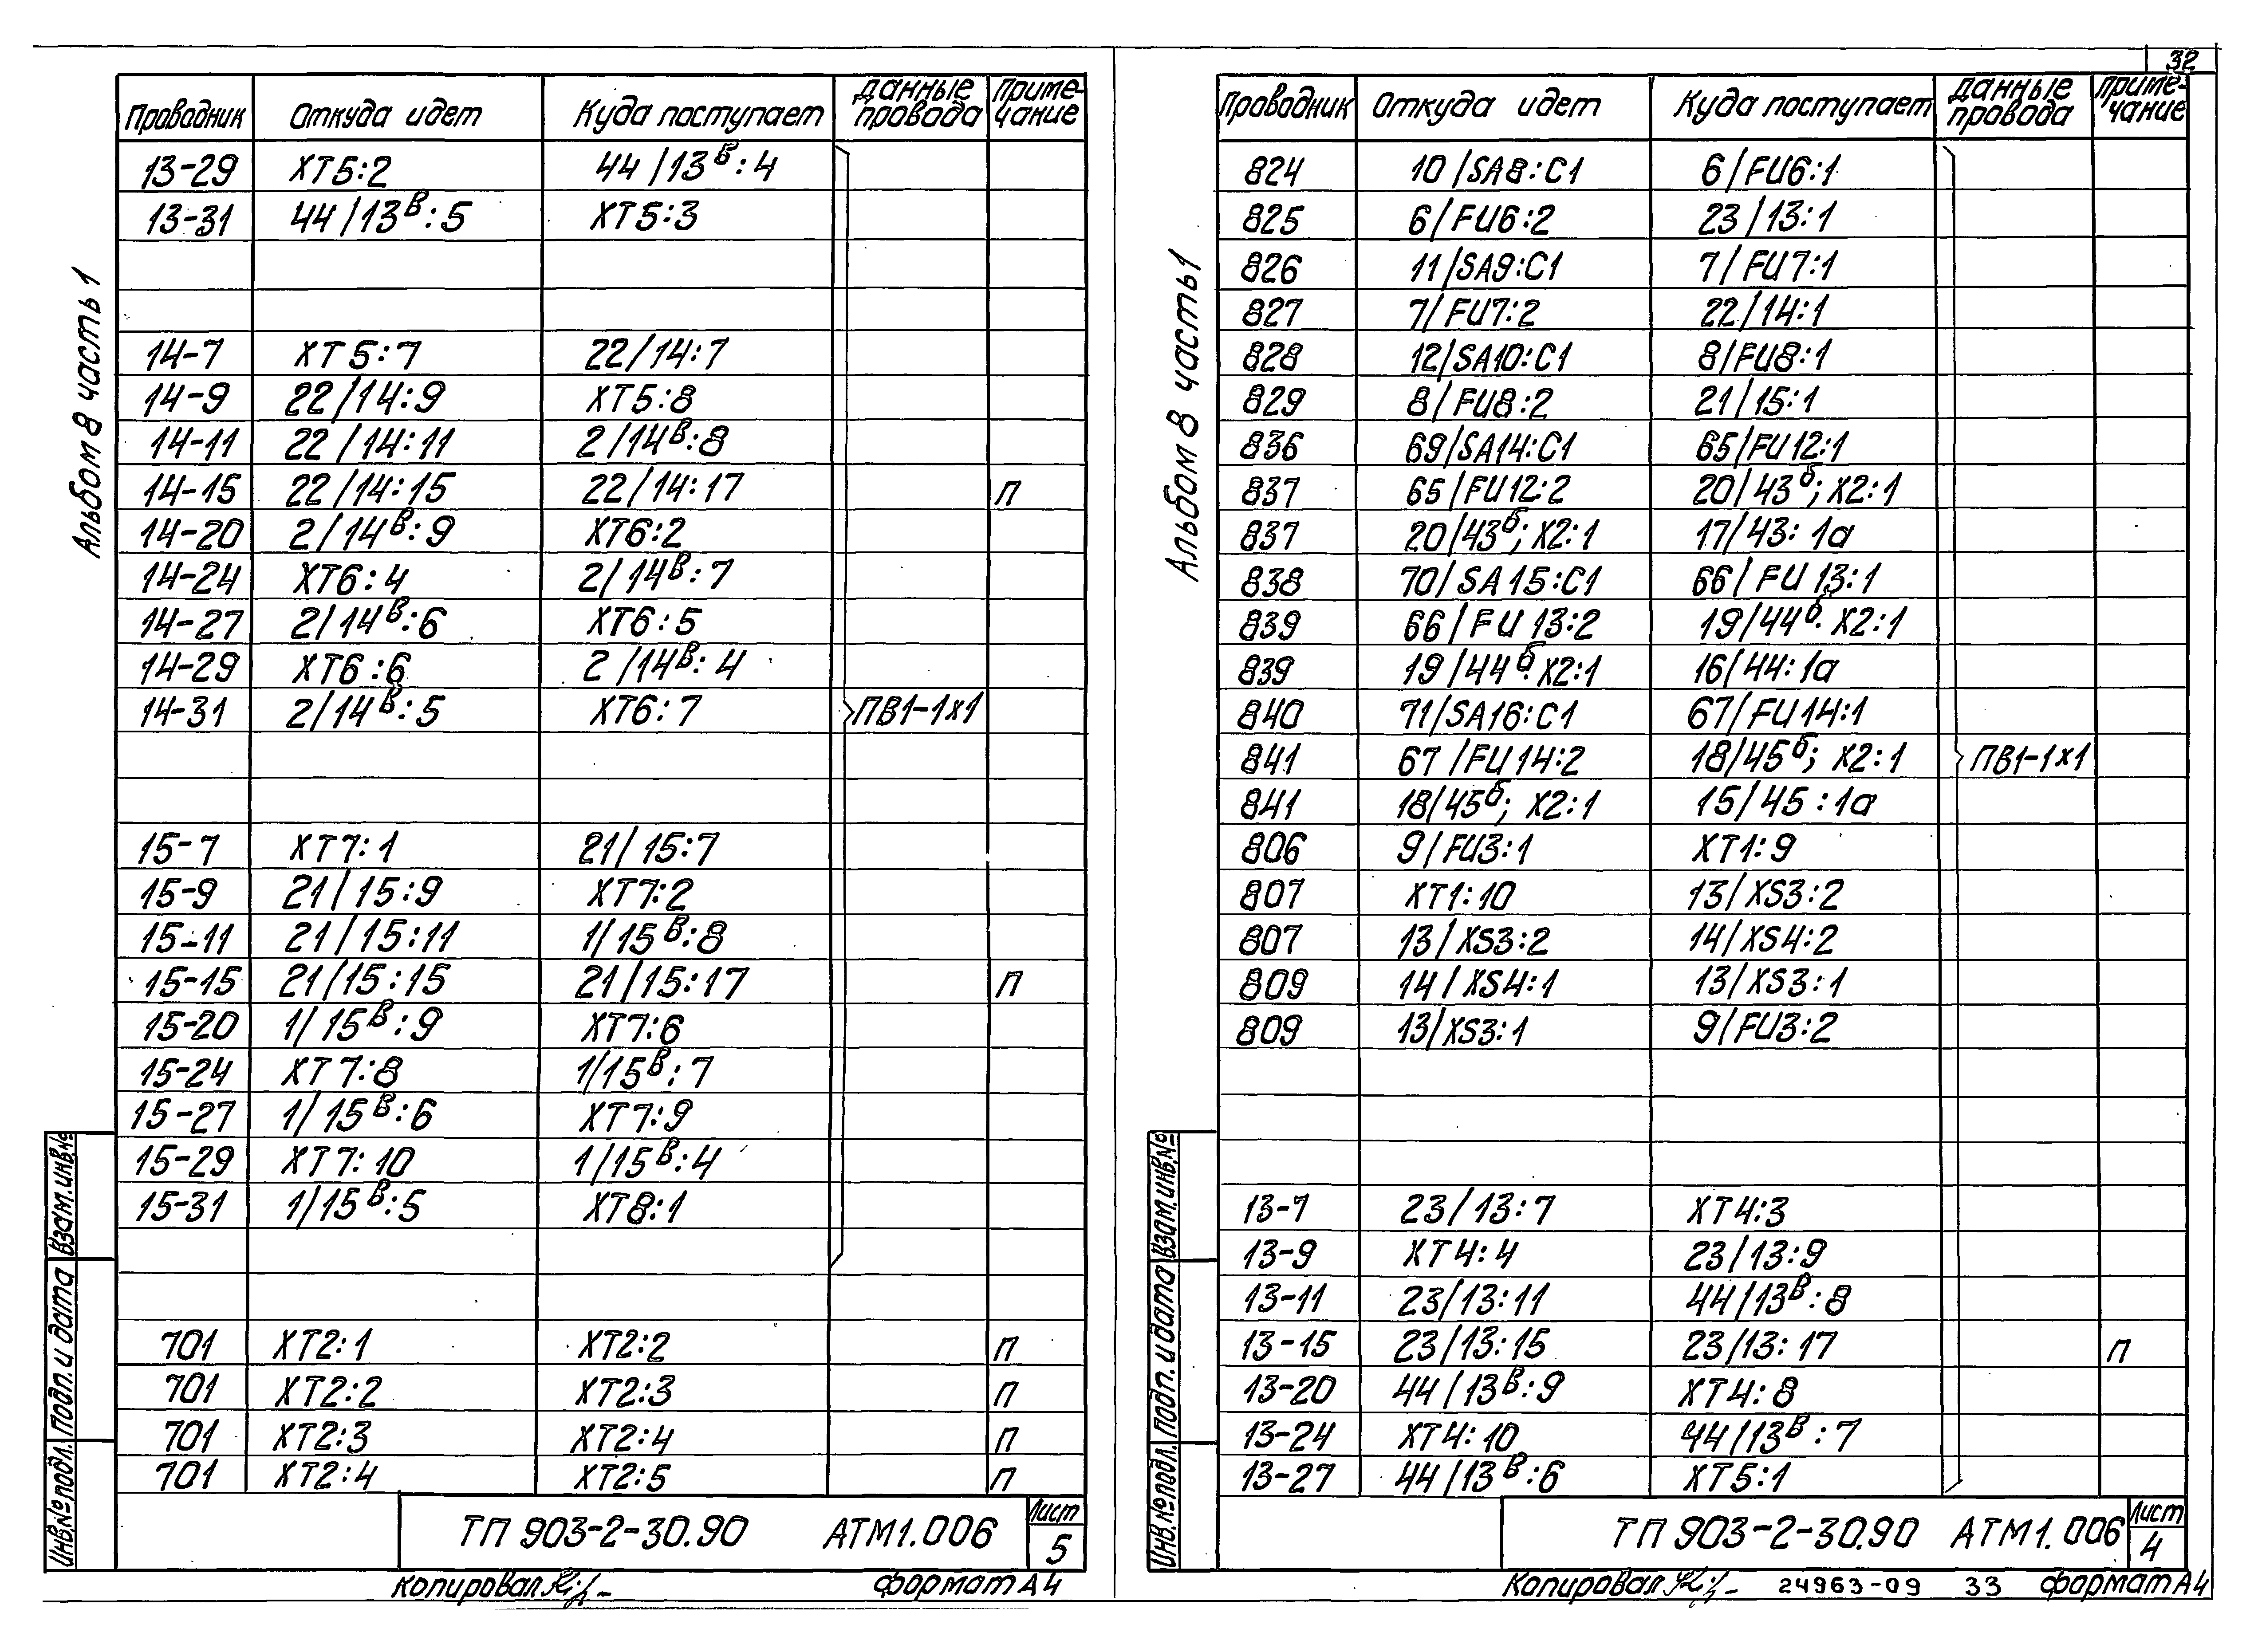 32
Альбом 8 часть 1
Проводник Откуда идет Куда поступает Данные провода Примечание
13-29 XT5:2 44/13в:4
13-31 44/13в:5 XT5:3
14-7 XT5:7 22/14:7
14-9 22/14:9 XT5:8
14-11 22/14:11 2/14в:8
14-15 22/14:15 22/14:17 п
14-20 2/14в:9 XT6:2
14-24 XT6:4 2/14в:7
14-27 2/14в:6 XT6:5
14-29 XT6:6 2/14в:4
14-31 2/14в:5 XT6:7 ПВ1-1х1
15-7 XT7:1 21/15:7
15-9 21/15:9 XT7:2
15-11 21/15:11 1/15в:8
15-15 21/15:15 21/15:17 п
15-20 1/15в:9 XT7:6
15-24 XT7:8 1/15в:7
15-27 1/15в:6 XT7:9
15-29 XT7:10 1/15в:4
15-31 1/15в:5 XT8:1
701 XT2:1 XT2:2 п
701 XT2:2 XT2:3 п
701 XT2:3 XT2:4 п
701 XT2:4 XT2:5 п
Инв.№подл. Подп. и дата Взам.инв.№
ТП 903-2-30.90 АТМ1.006 Лист 5
Копировал формат А4
Альбом 8 часть 1
Проводник Откуда идет Куда поступает Данные провода Примечание
824 10/SA8:C1 6/FU6:1
825 6/FU6:2 23/13:1
826 11/SA9:C1 7/FU7:1
827 7/FU7:2 22/14:1
828 12/SA10:C1 8/FU8:1
829 8/FU8:2 21/15:1
836 69/SA14:C1 65/FU12:1
837 65/FU12:2 20/43б; X2:1
837 20/43б; X2:1 17/43:1а
838 70/SA15:C1 66/FU13:1
839 66/FU13:2 19/44б. X2:1
839 19/44б. X2:1 16/44:1а
840 71/SA16:C1 67/FU14:1
841 67/FU14:2 18/45б; X2:1 ПВ1-1х1
841 18/45б; X2:1 15/45:1а
806 9/FU3:1 XT1:9
807 XT1:10 13/XS3:2
807 13/XS3:2 14/XS4:2
809 14/XS4:1 13/XS3:1
809 13/XS3:1 9/FU3:2
13-7 23/13:7 XT4:3
13-9 XT4:4 23/13:9
13-11 23/13:11 44/13в:8
13-15 23/13:15 23/13:17 п
13-20 44/13в:9 XT4:8
13-24 XT4:10 44/13в:7
13-27 44/13в:6 XT5:1
Инв.№подл. Подп. и дата Взам.инв.№
ТП 903-2-30.90 АТМ1.006 Лист 4
Копировал 24963-09 33 формат А4